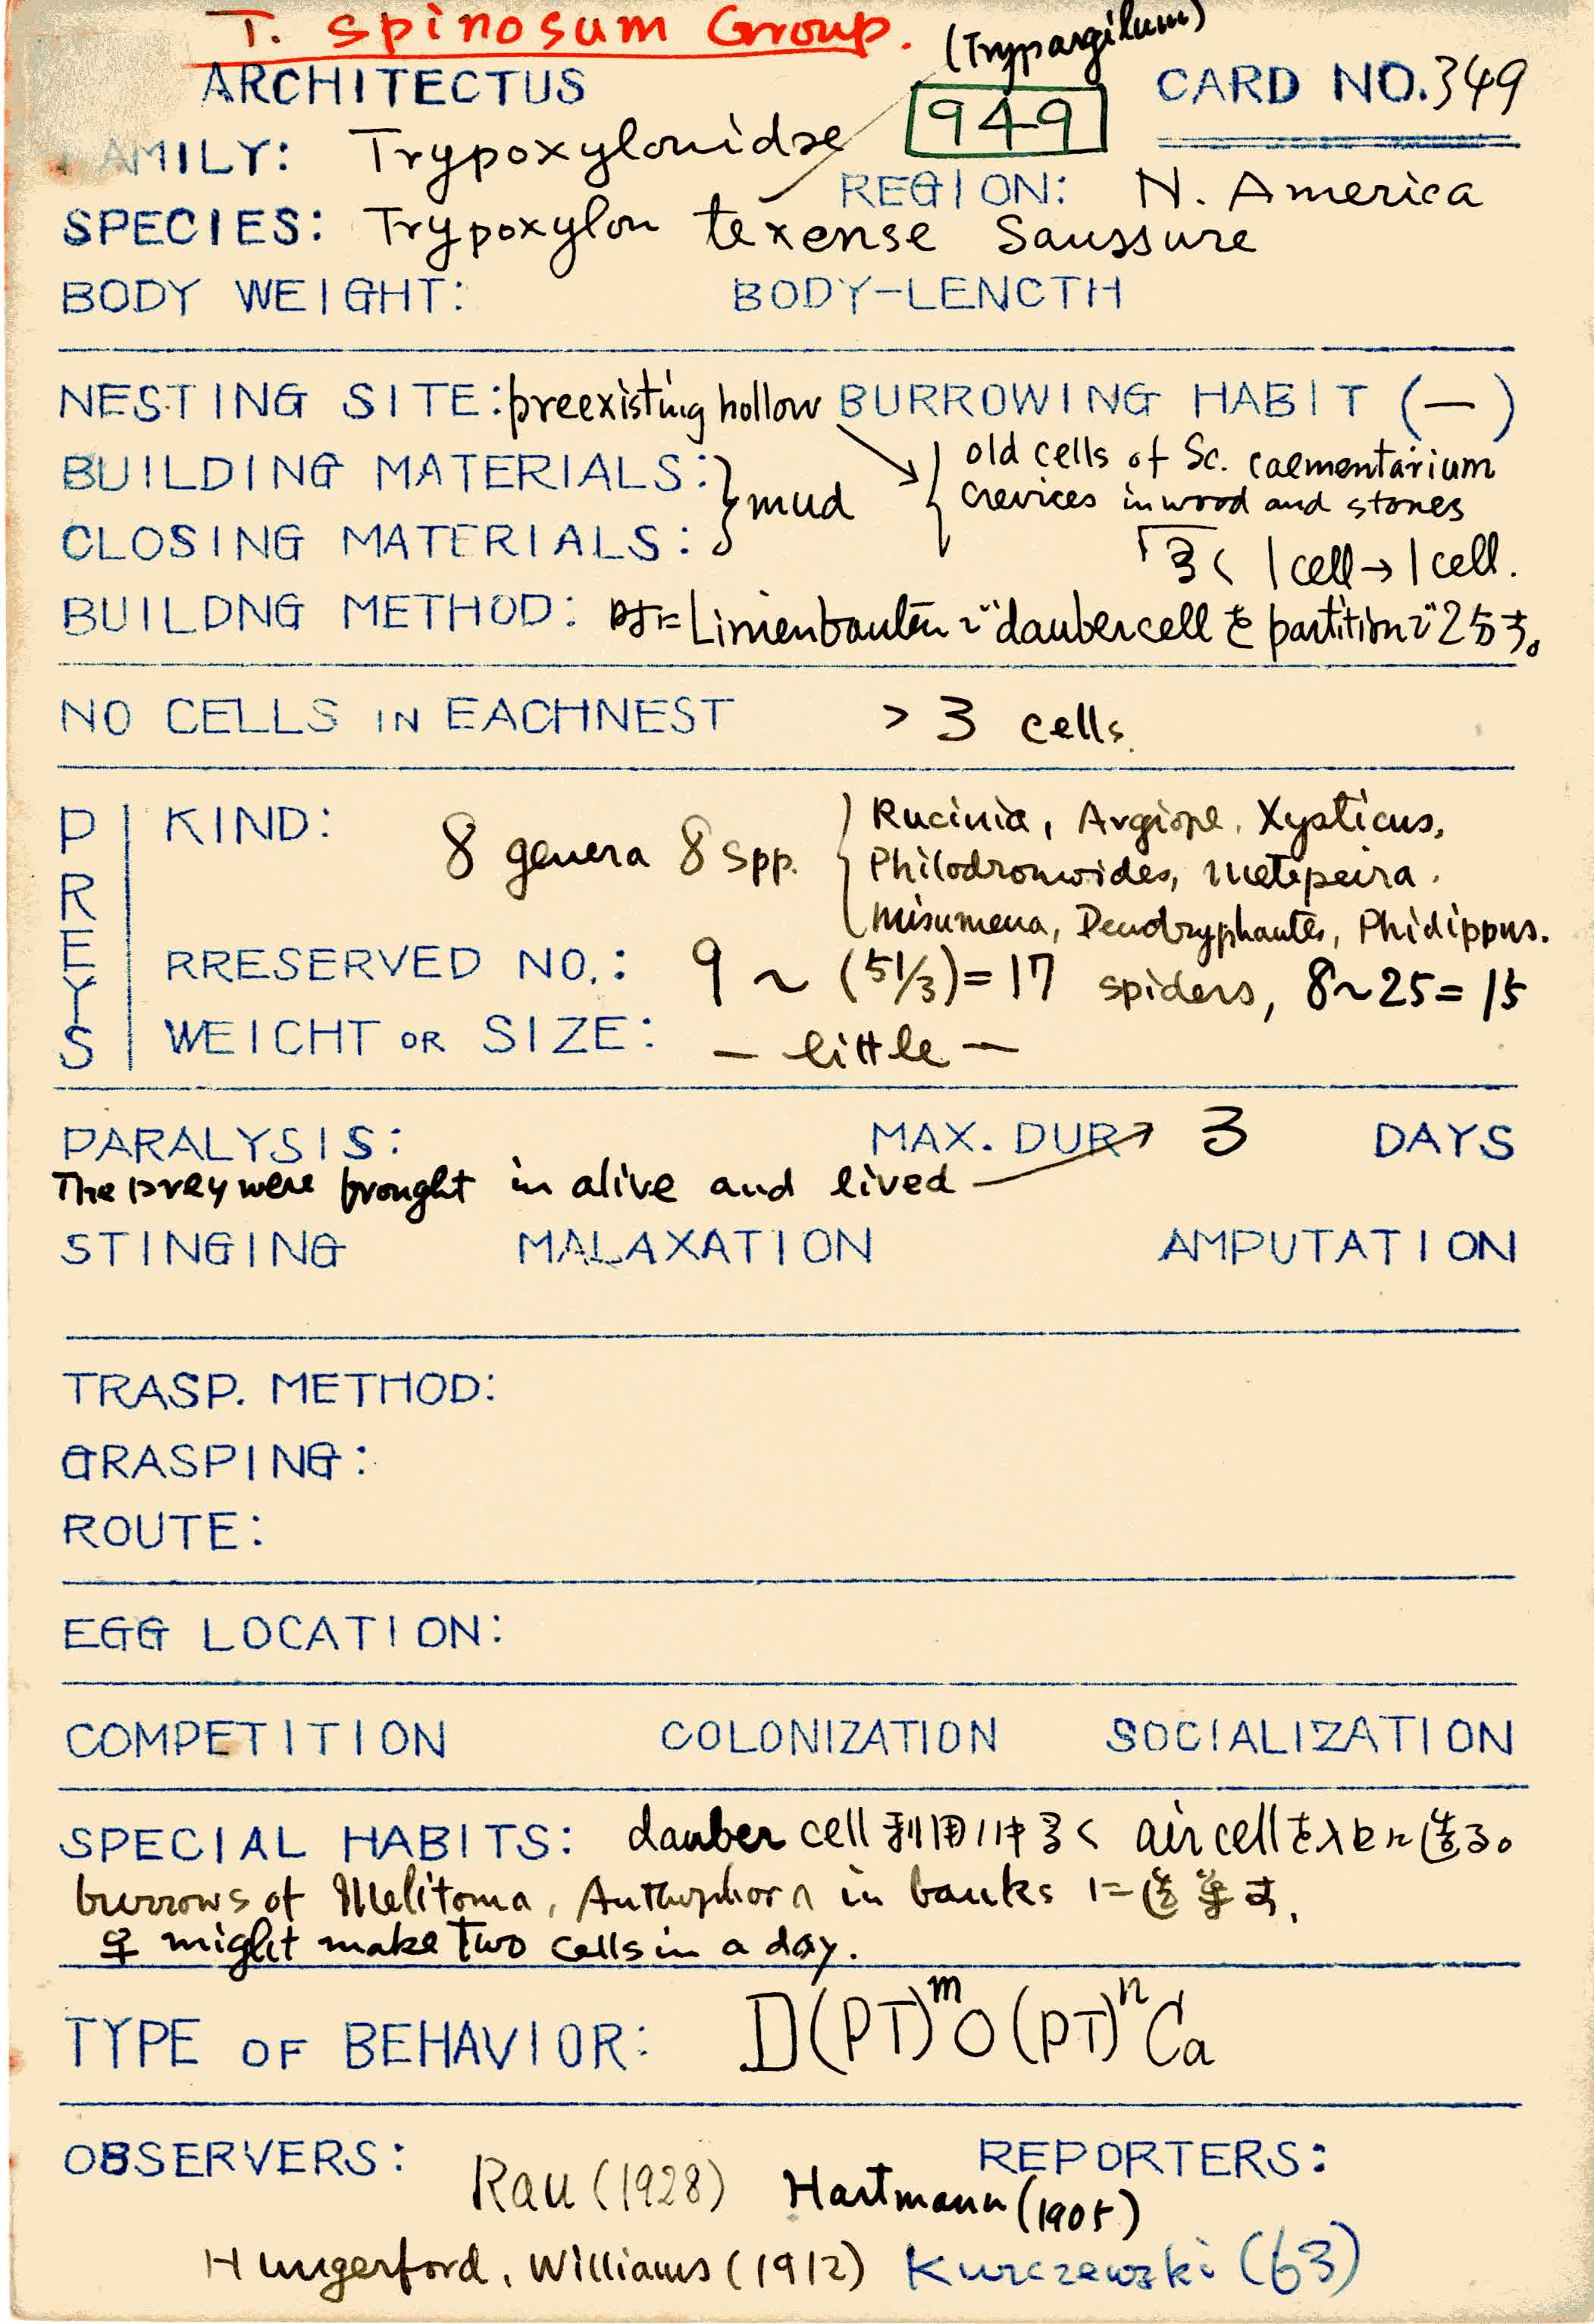 T. spinosum Group. (Trypargilum)
ARCHITECTUS 949 CARD NO. 349
AMILY: Trypoxylonidae
REGION: N. America
SPECIES: Trypoxylon texense Saussure
BODY WEIGHT: BODY-LENCTH
NESTING SITE: preexisting hollow BURROWING HABIT (—)
old cells of Sc. caementarium
BUILDING MATERIALS: } mud
crevices in wood and stones
CLOSING MATERIALS:
多く 1 cell → 1 cell.
BUILDNG METHOD: 時に Linienbauten daubercell を partition で 2分す。
NO CELLS IN EACHNEST > 3 cells.
PREYS
KIND: 8 genera 8 spp. { Rucinia, Argiope, Xysticus,
Philodromoides, Metepeira.
Misumena, Dendryphantes, Phidippus.
RRESERVED NO.: 9 ~ (51/3) = 17 spiders, 8~25 = 15
WEICHT OR SIZE: — little —
PARALYSIS: MAX. DUR → 3 DAYS
The prey were brought in alive and lived
STINGING MALAXATION AMPUTATION
TRASP. METHOD:
GRASPING:
ROUTE:
EGG LOCATION:
COMPETITION COLONIZATION SOCIALIZATION
SPECIAL HABITS: dauber cell 利用の時多く air cell を入口に造る。
burrows of Melitoma, Anthophora in banks に造巣す.
♀ might make two cells in a day.
TYPE OF BEHAVIOR: D(PT)ᵐO(PT)ⁿCa
OBSERVERS: REPORTERS:
Rau (1928) Hartmann (1905)
Hungerford, Williams (1912) Kurczewski (63)